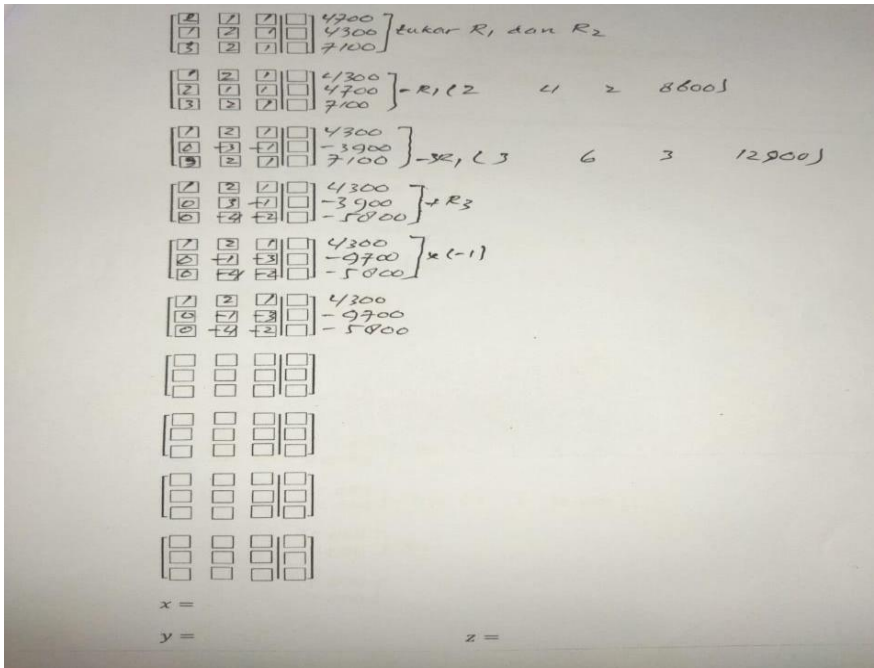 2 1 1 4700
1 2 1 4300 tukar R1 dan R2
3 2 1 7100
1 2 1 4300
2 1 1 4700 - R1 (2 4 2 8600)
3 2 1 7100
1 2 1 4300
0 +3 +1 -3900
3 2 1 7100 -3R1 (3 6 3 12900)
1 2 1 4300
0 3 +1 -3900 + R3
0 +4 +2 -5800
1 2 1 4300
0 +1 +3 -9700 x (-1)
0 +4 -5800
1 2 1 4300
0 +1 +3 -9700
0 +4 +2 -5800
x =
y = z =